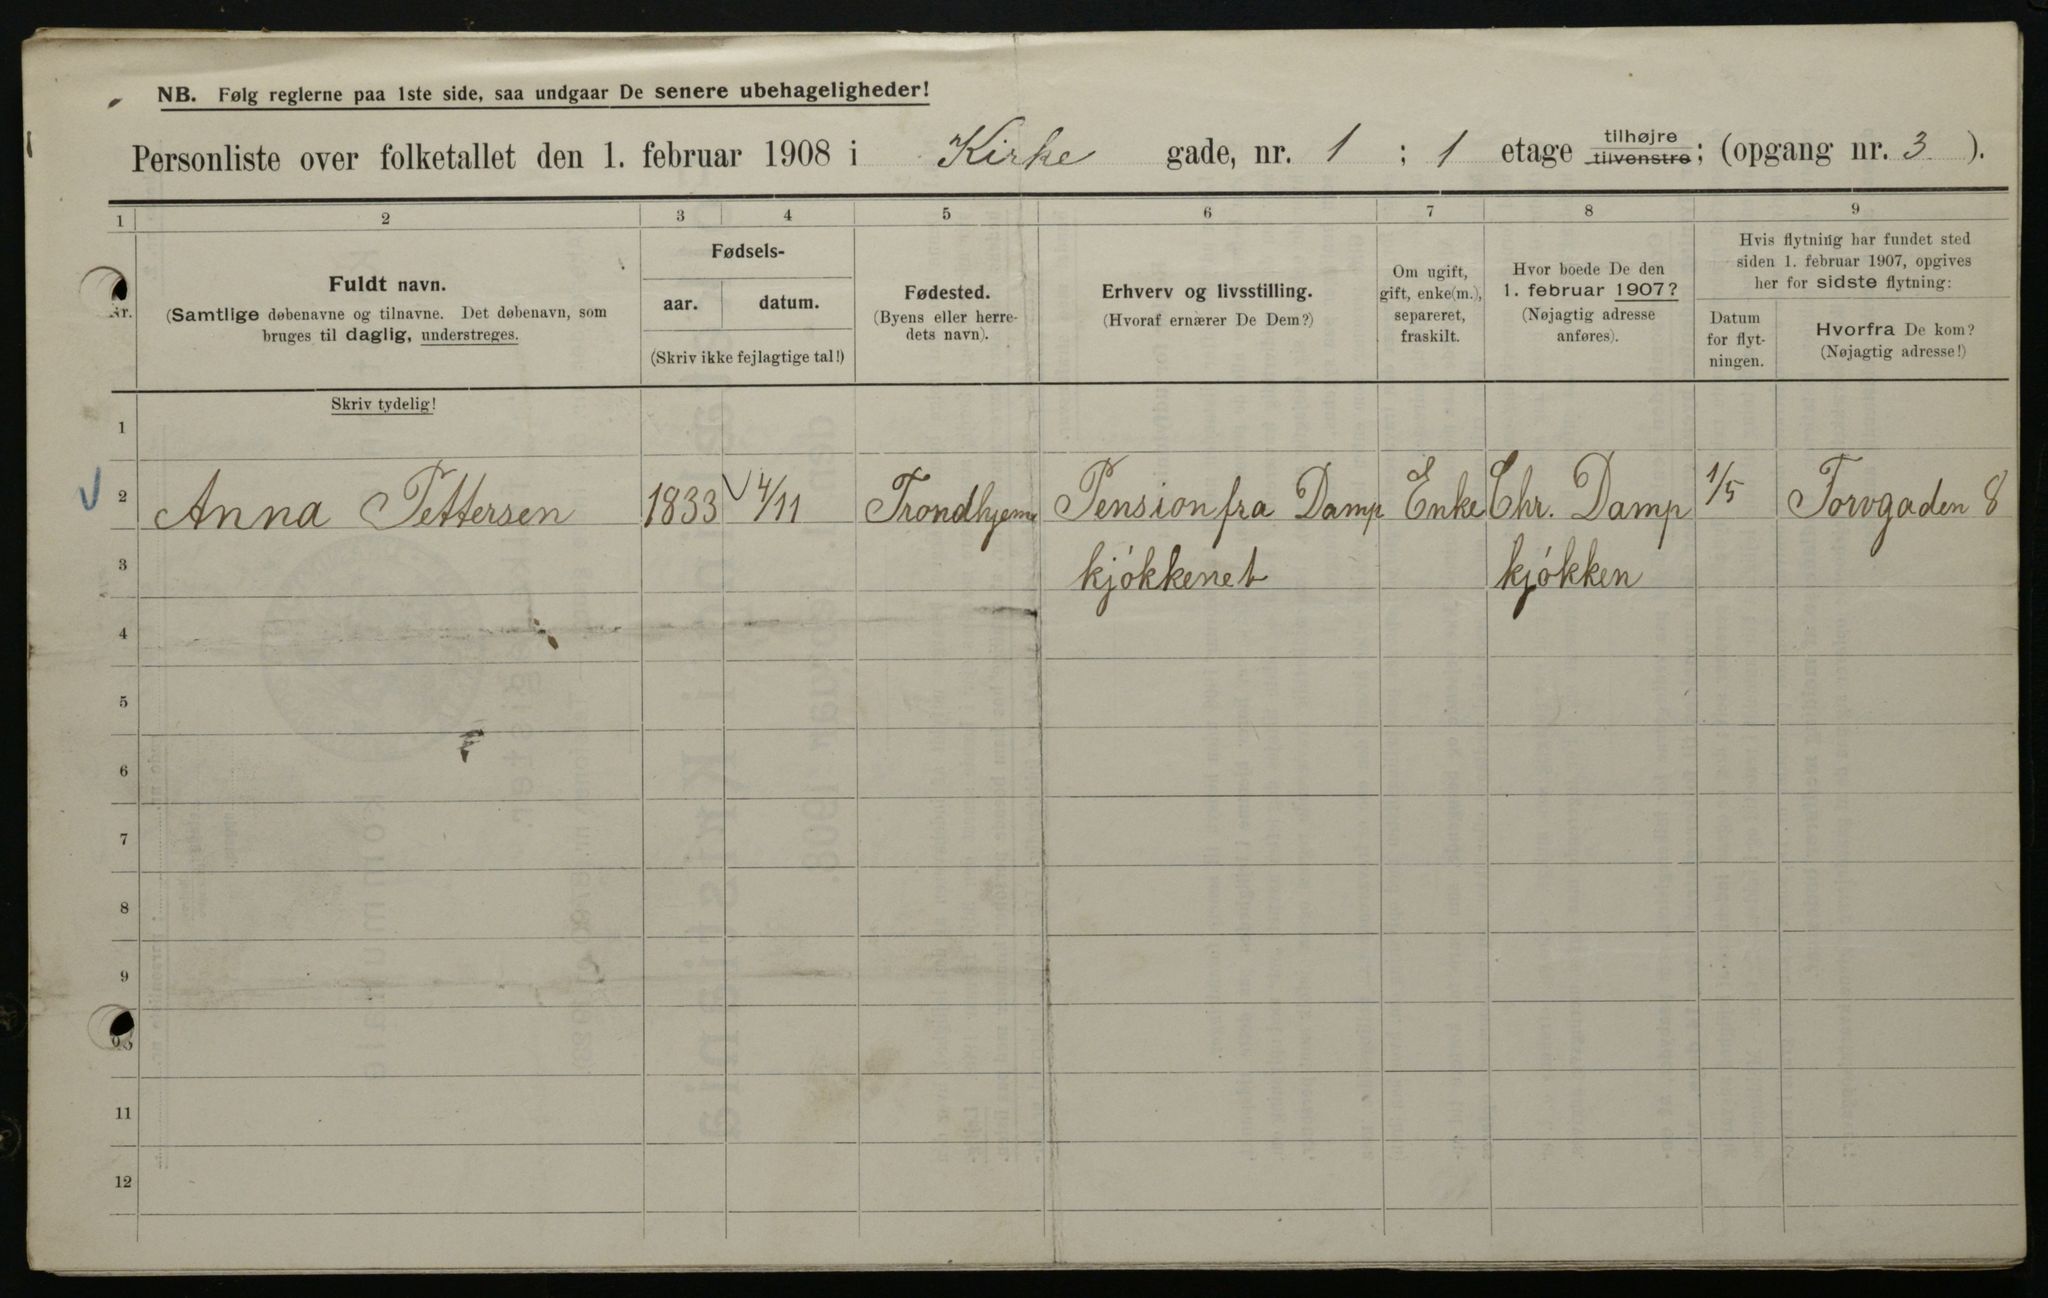 NB. Følg reglerne paa 1ste side, saa undgaar De senere ubehageligheder!
Personliste over folketallet den 1. februar 1908 i Kirke gade, nr. 1 ; 1 etage tilhøjre tilvenstre; (opgang nr. 3 ).
1 2 3 4 5 6 7 8 9
Nr.
Fuldt navn.
(Samtlige døbenavne og tilnavne. Det døbenavn, som
bruges til daglig, understreges.
Skriv tydelig!
Fødsels-
aar. datum.
(Skriv ikke fejlagtige tal!)
Fødested.
(Byens eller herre-
dets navn).
Erhverv og livsstilling.
(Hvoraf ernærer De Dem?)
Om ugift,
gift, enke(m.),
separeret,
fraskilt.
Hvor boede De den
1. februar 1907?
(Nøjagtig adresse
anføres).
Hvis flytning har fundet sted
siden 1. februar 1907, opgives
her for sidste flytning:
Datum
for flyt-
ningen.
Hvorfra De kom?
(Nøjagtig adresse!)
1
2 Anna Pettersen 1833 4/11 Trondhjem Pension fra Damp Enke Chr. Damp 1/5 Torvgaden 8
3 kjókkenet kjókken
4
5
6
7
8
9
10
11
12